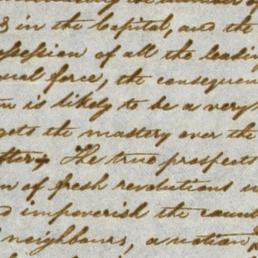 in the Capital, and the
ssession of all the leading
ical force, the consequen
is likely to be a very
gets the mastery over the
after. The true prospects
n of fresh revolutions in
impoverish the coun
neighbours, a nation,